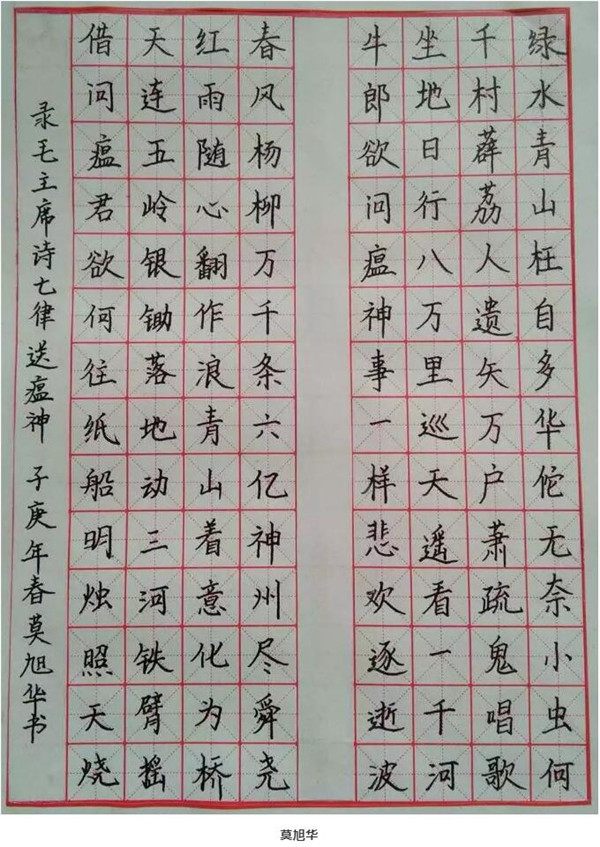 绿水青山枉自多华佗无奈小虫何
千村薜荔人遗矢万户萧疏鬼唱歌
坐地日行八万里巡天遥看一千河
牛郎欲问瘟神事一样悲欢逐逝波
春风杨柳万千条六亿神州尽舜尧
红雨随心翻作浪青山着意化为桥
天连五岭银锄落地动三河铁臂摇
借问瘟君欲何往纸船明烛照天烧
录毛主席诗七律送瘟神 子庚年春莫旭华书
莫旭华